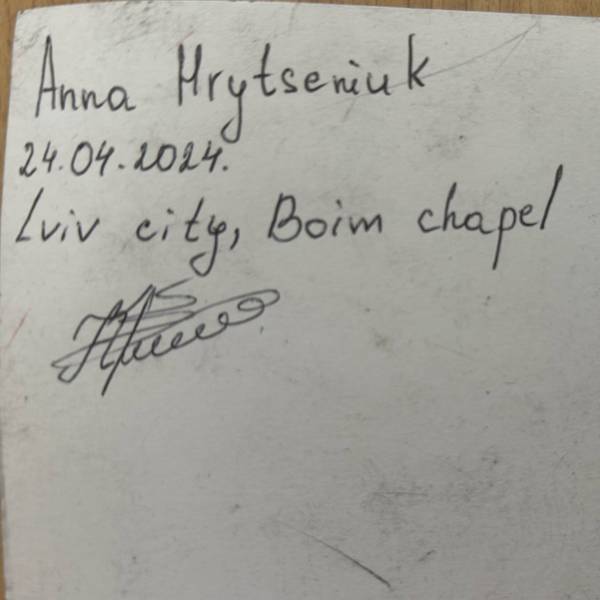 Anna Hrytseniuk
24.04.2024.
Lviv city, Boim chapel